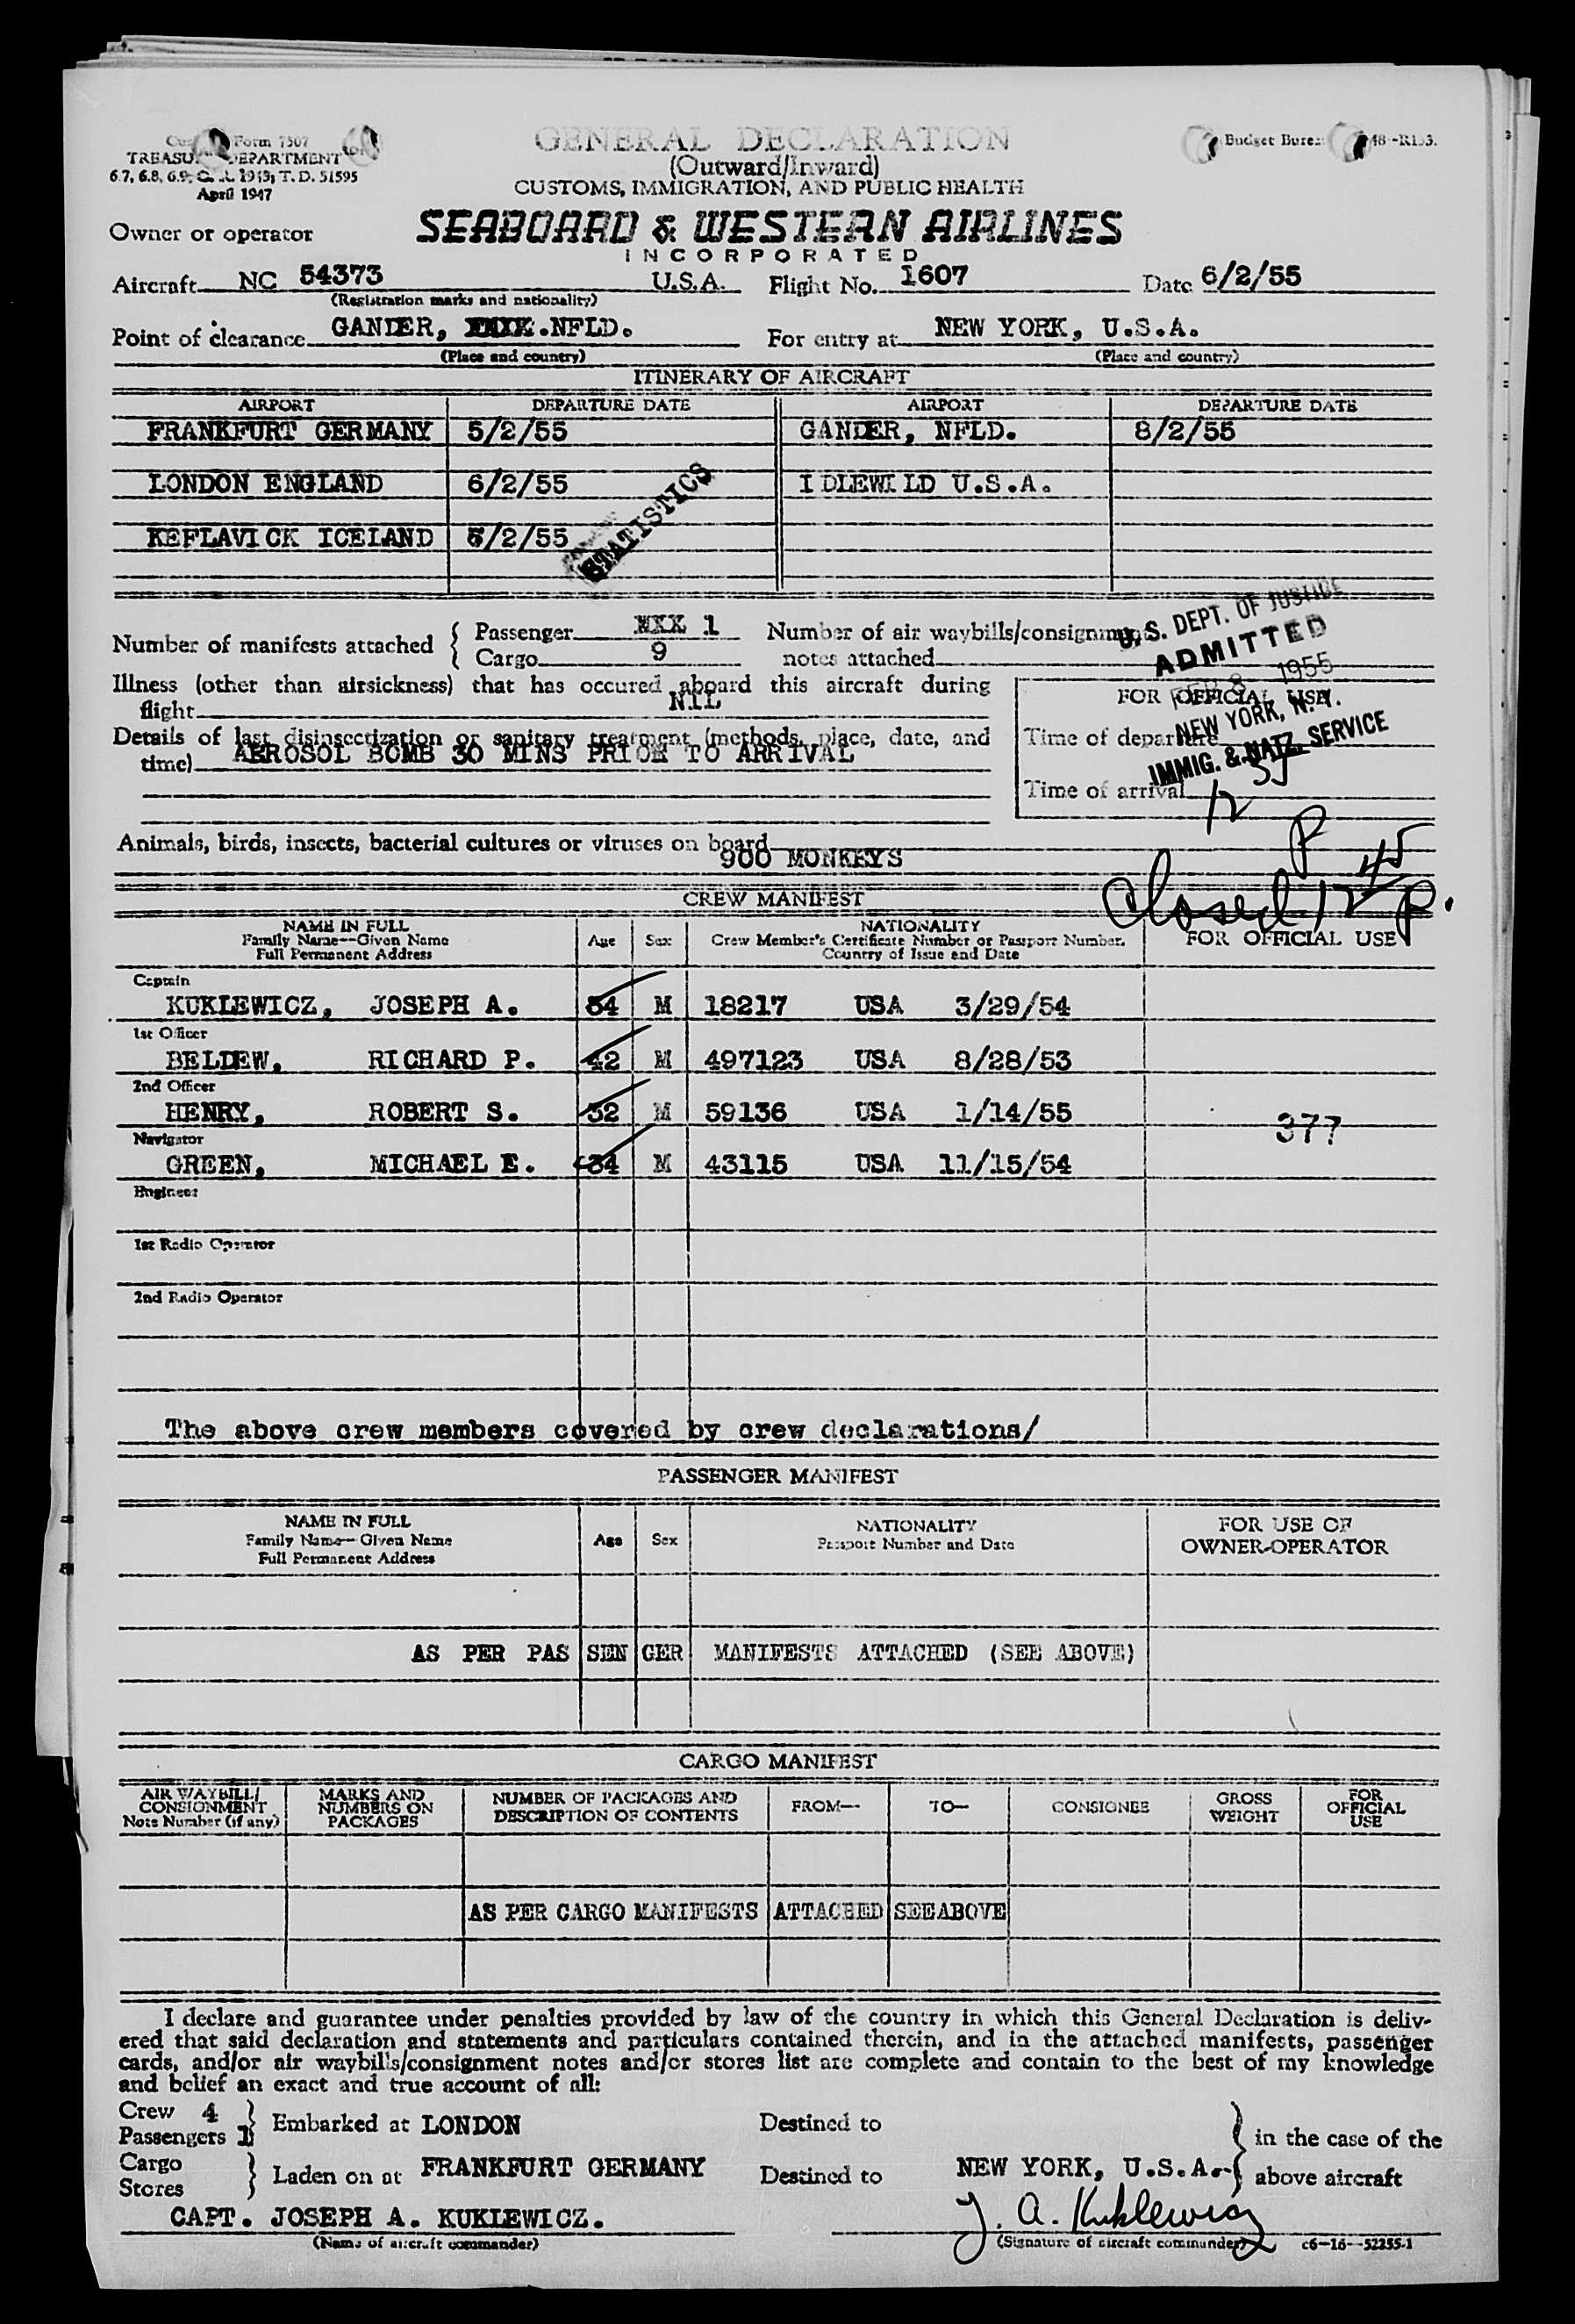 Form 7507
TREASU DEPARTMENT
6.7, 6.8, 6.9, 1943, T. D. 51595
April 1947
GENERAL DECLARATION
(Outward/Inward)
CUSTOMS, IMMIGRATION, AND PUBLIC HEALTH
Budget Burea 48-R133.
Owner or operator SEABOARD & WESTERN AIRLINES
INCORPORATED
Aircraft NC 54373 U.S.A. Flight No. 1607 Date 6/2/55
(Registration marks and nationality)
Point of clearance GANDER, .NFLD. For entry at NEW YORK, U.S.A.
(Place and country) (Place and country)
ITINERARY OF AIRCRAFT
AIRPORT DEPARTURE DATE AIRPORT DEPARTURE DATE
FRANKFURT GERMANY 5/2/55 GANDER, NFLD. 8/2/55
LONDON ENGLAND 6/2/55 IDLEWILD U.S.A.
KEFLAVICK ICELAND /2/55
STATISTICS
Number of manifests attached { Passenger NXX 1 Number of air waybills/consignment
Cargo 9 notes attached
U. S. DEPT. OF JUSTICE
ADMITTED
FEB 8 1955
NEW YORK, N. Y.
IMMIG. & NATZ. SERVICE
Illness (other than airsickness) that has occured aboard this aircraft during
flight NIL
FOR OFFICIAL USE
Details of last disinsectization or sanitary treatment (methods, place, date, and
time) AEROSOL BOMB 30 MINS PRIOR TO ARRIVAL
Time of departure
Time of arrival 12 35
P
Animals, birds, insects, bacterial cultures or viruses on board
900 MONKEYS
Closed 12 45 P.
CREW MANIFEST
NAME IN FULL
Family Name--Given Name
Full Permanent Address
Age Sex
NATIONALITY
Crew Member's Certificate Number or Passport Number.
Country of Issue and Date
FOR OFFICIAL USE
Captain
KUKLEWICZ, JOSEPH A. 34 M 18217 USA 3/29/54
1st Officer
BELDEW, RICHARD P. 42 M 497123 USA 8/28/53
2nd Officer
HENRY, ROBERT S. 32 M 59136 USA 1/14/55
377
Navigator
GREEN, MICHAEL E. 34 M 43115 USA 11/15/54
Engineer
1st Radio Operator
2nd Radio Operator
The above crew members covered by crew declarations/
PASSENGER MANIFEST
NAME IN FULL
Family Name--Given Name
Full Permanent Address
Age Sex
NATIONALITY
Passport Number and Date
FOR USE OF
OWNER-OPERATOR
AS PER PAS SEN GER MANIFESTS ATTACHED (SEE ABOVE)
CARGO MANIFEST
AIR WAYBILL/
CONSIGNMENT
Note Number (if any)
MARKS AND
NUMBERS ON
PACKAGES
NUMBER OF PACKAGES AND
DESCRIPTION OF CONTENTS
FROM-- TO-- CONSIGNEE
GROSS
WEIGHT
FOR
OFFICIAL
USE
AS PER CARGO MANIFESTS ATTACHED SEEABOVE
I declare and guarantee under penalties provided by law of the country in which this General Declaration is deliv-
ered that said declaration and statements and particulars contained therein, and in the attached manifests, passenger
cards, and/or air waybills/consignment notes and/or stores list are complete and contain to the best of my knowledge
and belief an exact and true account of all:
Crew 4
Passengers 1 } Embarked at LONDON Destined to } in the case of the
Cargo
Stores } Laden on at FRANKFURT GERMANY Destined to NEW YORK, U.S.A. above aircraft
CAPT. JOSEPH A. KUKLEWICZ. J. A. Kuklewicz
(Name of aircraft commander) (Signature of aircraft commander) c6-16--52255-1